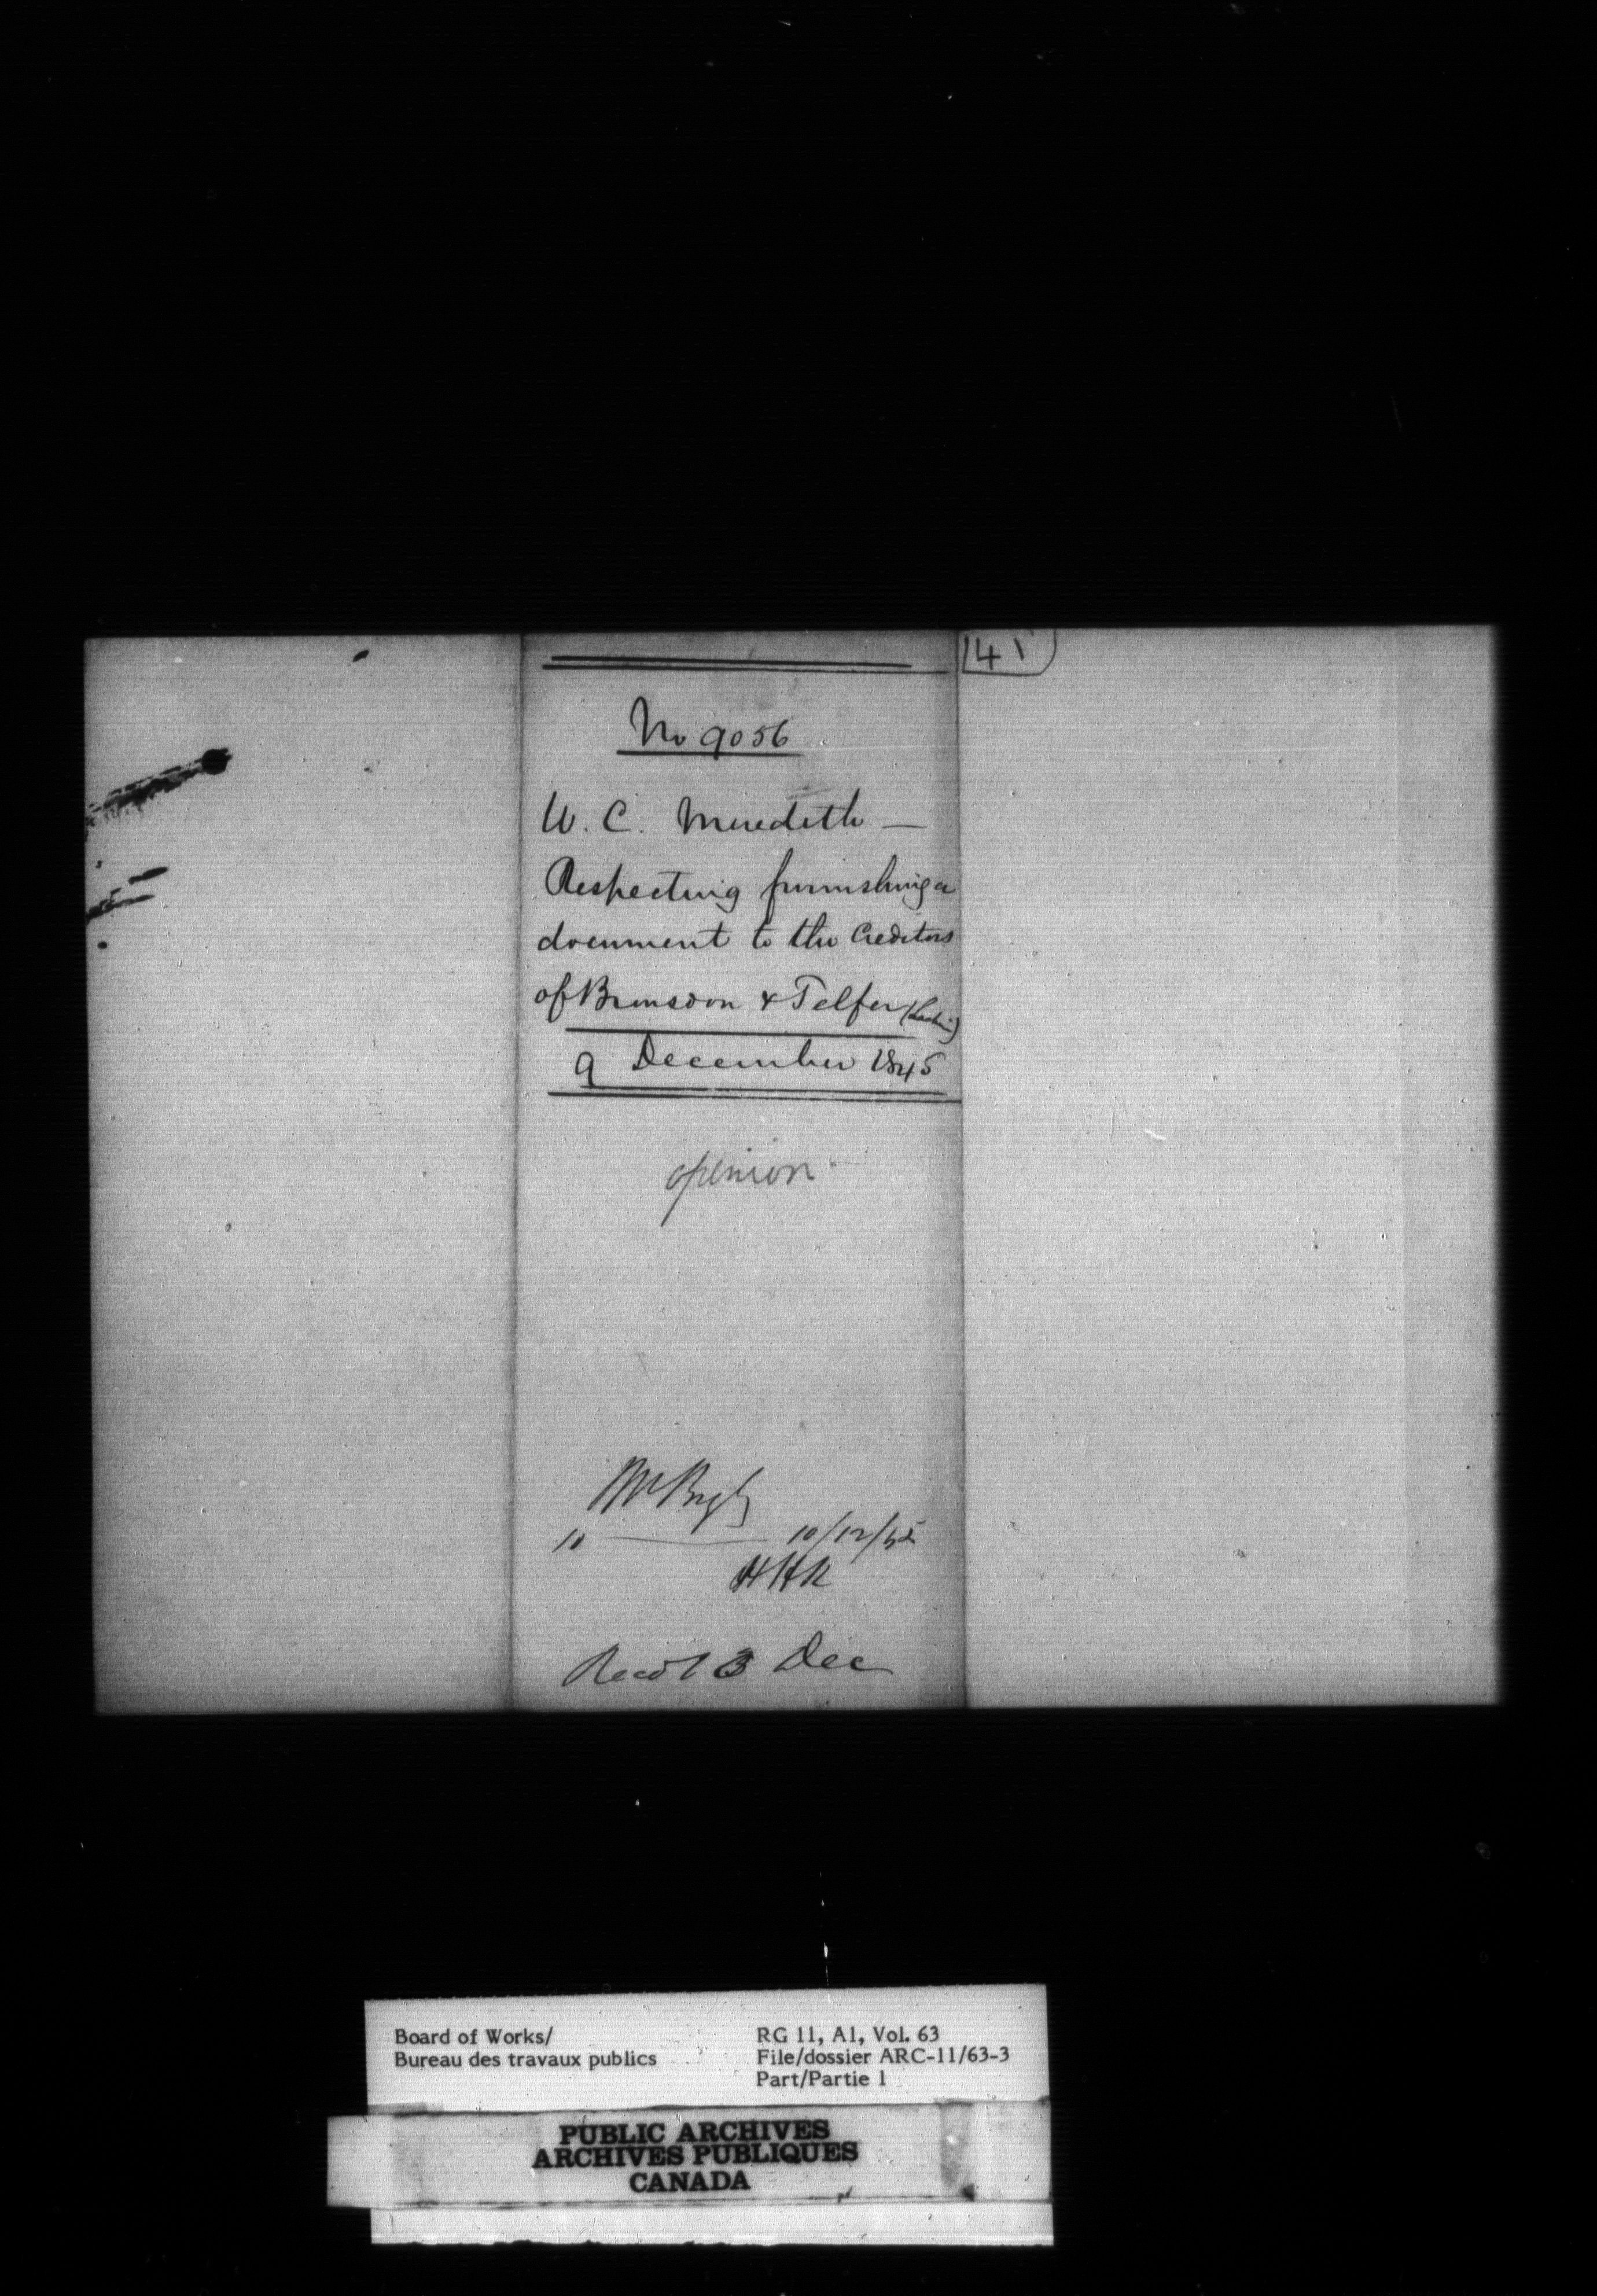 141
No 9056
W. C. Meredith —
Respecting furnishing a
document to the Creditors
of Brunsdon & Telfer (Lachine)
9 December 1845
opinion
Mr Begly
10 — 10/12/45
HHK
Recd 13 Dec
Board of Works/
Bureau des travaux publics
RG 11, A1, Vol. 63
File/dossier ARC-11/63-3
Part/Partie 1
PUBLIC ARCHIVES
ARCHIVES PUBLIQUES
CANADA